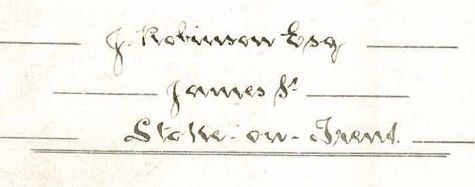 J. Robinson Esq
James St
Stoke-on-Trent